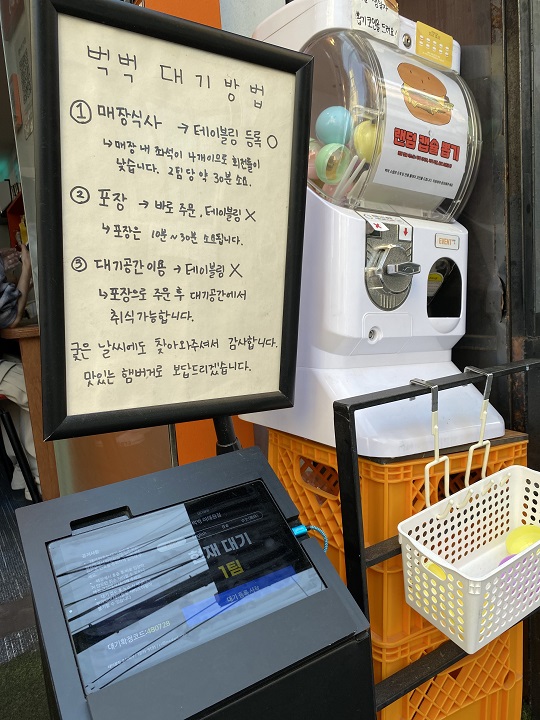 벅벅 대기 방법
① 매장식사 → 테이블링 등록 ○
↳ 매장 내 좌석이 4개이므로 회전률이
낮습니다. 2팀 당 약 30분 소요.
② 포장 → 바로 주문, 테이블링 X
↳ 포장은 10분~30분 소요됩니다.
③ 대기공간 이용 → 테이블링 X
↳ 포장으로 주문 후 대기공간에서
취식 가능합니다.
궂은 날씨에도 찾아와주셔서 감사합니다.
맛있는 햄버거로 보답드리겠습니다.
랜덤 캡슐 뽑기
EVENT
재 대기
1팀
대기확정코드:480728